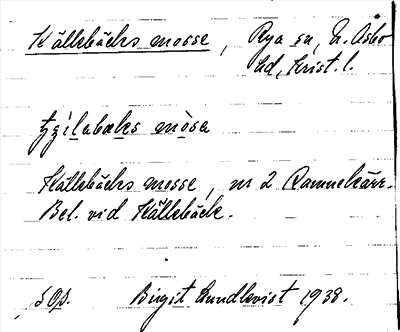 Källsbäcks mosse, Rya sn, N. Åsbo
hd, Krist. l.
mòsa
Källsbäcks mosse, nr 2 Ramnekärr.
Bel. vid Källsbäck.
Birgit Lundkvist 1938.